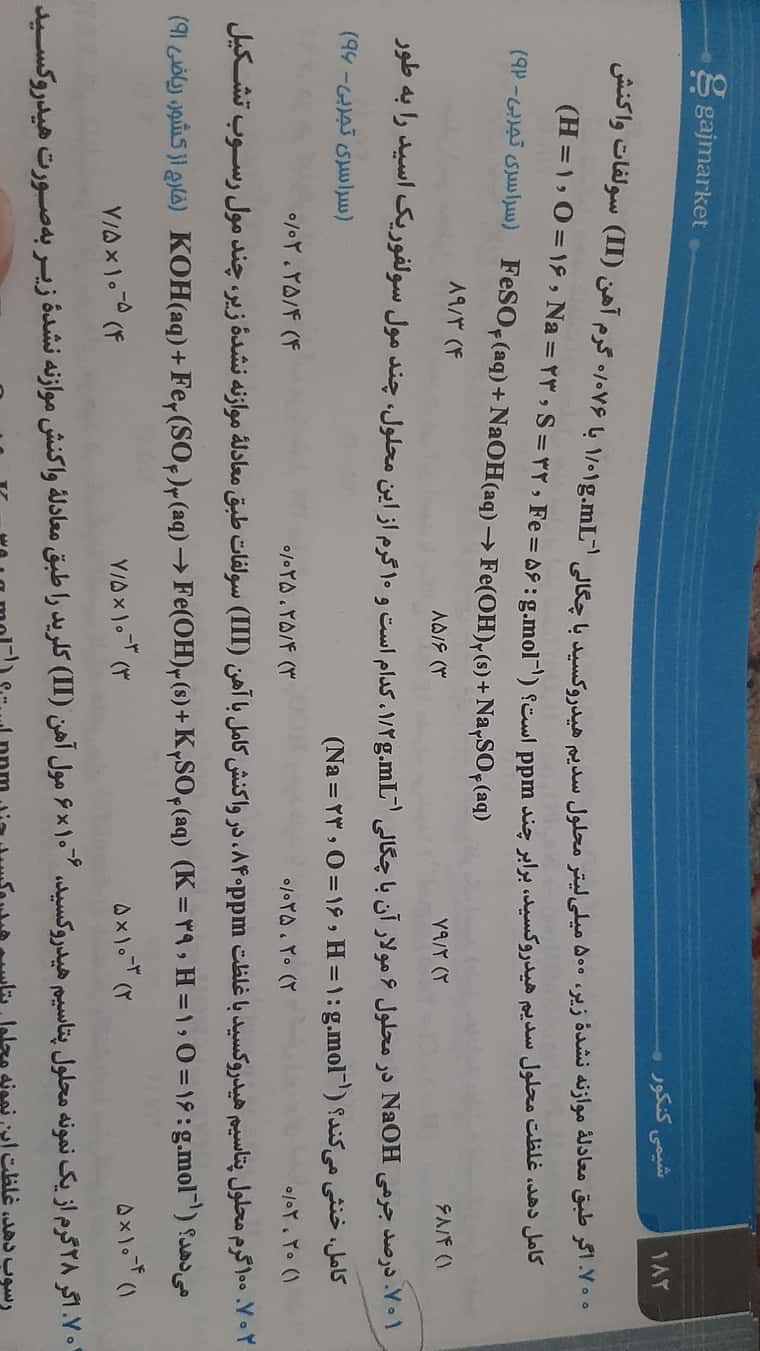 gajmarket
شیمی کنکور
۱۸۲
۷۰۰. اگر طبق معادلهٔ موازنه نشدهٔ زیر، ۵۰۰ میلی‌لیتر محلول سدیم هیدروکسید با چگالی ۱/۰۱g.mL⁻¹ با ۰/۰۷۶ گرم آهن (II) سولفات واکنش
کامل دهد، غلظت محلول سدیم هیدروکسید، برابر چند ppm است؟ (H = ۱ , O = ۱۶ , Na = ۲۳ , S = ۳۲ , Fe = ۵۶ : g.mol⁻¹)
FeSO₄(aq) + NaOH(aq) → Fe(OH)₂(s) + Na₂SO₄(aq) (سراسری تجربی - ۹۲)
۱) ۶۸/۴ ۲) ۷۹/۲ ۳) ۸۵/۶ ۴) ۸۹/۳
۷۰۱. درصد جرمی NaOH در محلول ۶ مولار آن با چگالی ۱/۲g.mL⁻¹، کدام است و ۱۰ گرم از این محلول، چند مول سولفوریک اسید را به طور
کامل، خنثی می‌کند؟ (Na = ۲۳ , O = ۱۶ , H = ۱ : g.mol⁻¹) (سراسری تجربی - ۹۶)
۱) ۲۰ ، ۰/۰۲ ۲) ۲۰ ، ۰/۰۲۵ ۳) ۲۵/۴ ، ۰/۰۲۵ ۴) ۲۵/۴ ، ۰/۰۲
۷۰۲. ۱۰۰ گرم محلول پتاسیم هیدروکسید با غلظت ۸۴۰ppm، در واکنش کامل با آهن (III) سولفات طبق معادلهٔ موازنه نشدهٔ زیر، چند مول رسوب تشکیل
می‌دهد؟ (K = ۳۹ , H = ۱ , O = ۱۶ : g.mol⁻¹) KOH(aq) + Fe₂(SO₄)₃(aq) → Fe(OH)₃(s) + K₂SO₄(aq) (خارج از کشور ریاضی ۹۱)
۱) ۵×۱۰⁻⁴ ۲) ۵×۱۰⁻³ ۳) ۷/۵×۱۰⁻³ ۴) ۷/۵×۱۰⁻⁵
اگر ۲۸ گرم از یک نمونه محلول پتاسیم هیدروکسید، ۶×۱۰⁻⁶ مول آهن (II) کلرید را طبق معادلهٔ واکنش موازنه نشدهٔ زیر به‌صورت هیدروکسید
رسوب دهد، غلظت این نمونه محلول پتاسیم هیدروکسید چند ppm است؟